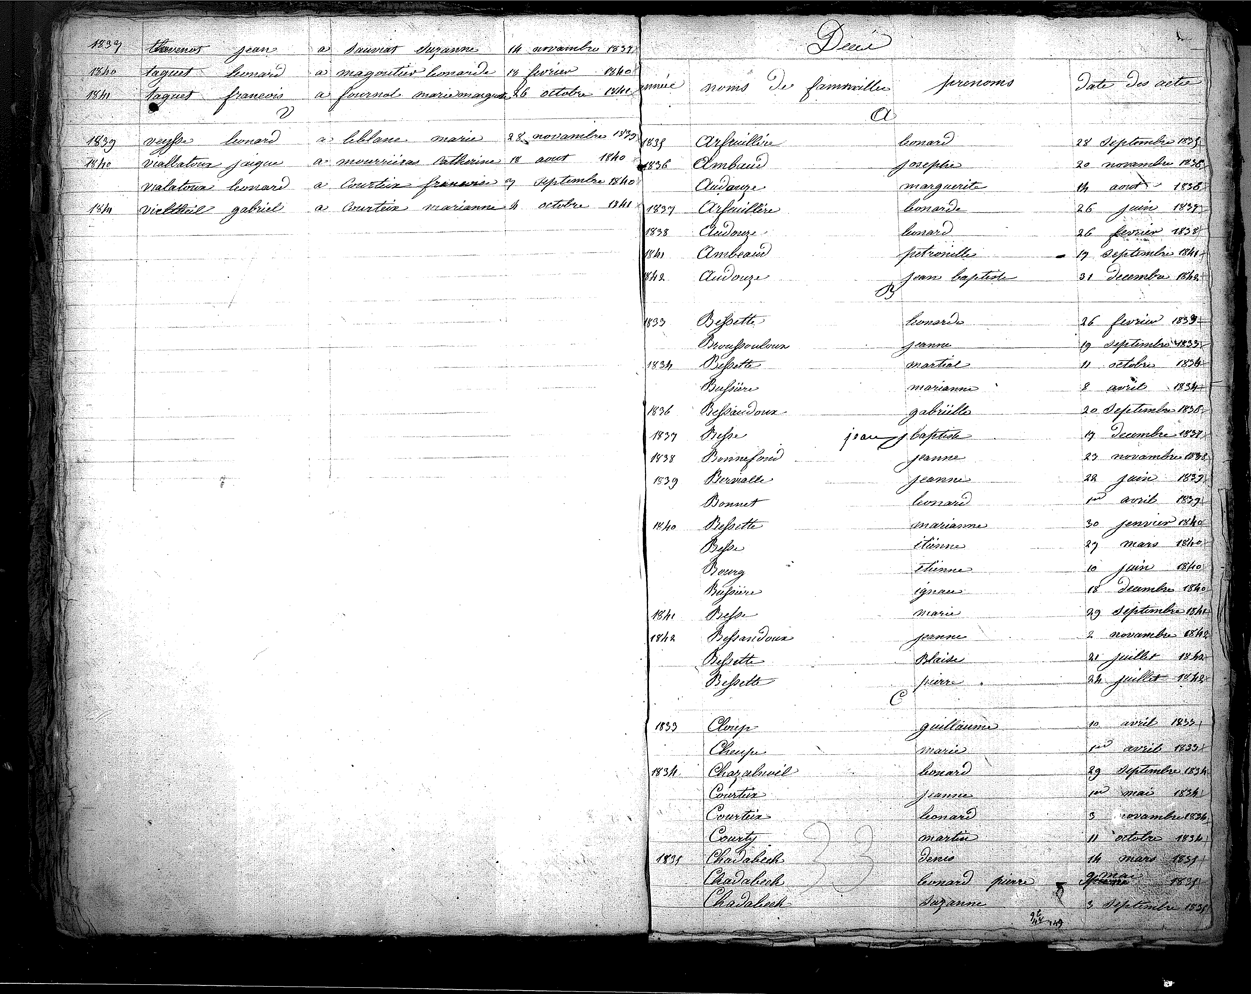 1839 thevenot jean a sauviat suzanne 14 novembre 1839
1840 taguet leonard a magoutier leonarde 18 fevrier 1840
1841 taguet francois a fournol marie 26 octobre 1841
V
1839 veysse leonard a leblanc marie 28 novembre 1839
1840 viallatoux jaque a mourrieras catherine 18 aout 1840
vialatoux leonard a courteix 7 septembre 1840
1841 gabriel a courteix marianne 4 octobre 1841
Décé
année noms de fammille prenoms date des acte
A
1835 Arfeuillère leonard 28 septembre 1835
1836 Ambieud josephe 20 novembre 1836
Audouze marguerite 14 aout 1836
1837 Arfeuillère leonarde 26 juin 1837
1838 Audouze leonard 26 fevrier 1838
1841 Ambeaud petronille 19 septembre 1841
1842 Audouze jean baptiste 31 decembre 1842
B
1833 Bessette leonarde 26 fevrier 1833
Broussouloux jeanne 19 septembre 1833
1834 Bessette martial 11 octobre 1834
Bussière marianne 8 avril 1834
1836 Bessaudoux gabriëlle 20 septembre 1836
1837 Besse jean baptiste 17 decembre 1837
1838 Bonnefond jeanne 23 novembre 1838
1839 jeanne 22 juin 1839
Bonnet leonard 1er avril 1839
1840 Bessette marianne 30 janvier 1840
Besse etienne 27 mars 1840
Bourg etienne 10 juin 1840
Bussière ignace 18 decembre 1840
1841 Besse marie 29 septembre 1841
1842 Bessaudoux jeanne 2 novembre 1842
Bessette Blaise 21 juillet 1842
Bessette pierre 24 juillet 1842
C
1833 Cloup guillaume 10 avril 1833
Cheype marie 1er avril 1833
1834 Chazalnoël leonard 29 septembre 1834
Courteix jeanne 1er mai 1834
Courteix leonard 3 novembre 1834
Courty martin 11 octobre 1834
1835 Chadabech denis 14 mars 1835
Chadabech leonard pierre 9 mai 1835
Chadabech suzanne 3 septembre 1835
33